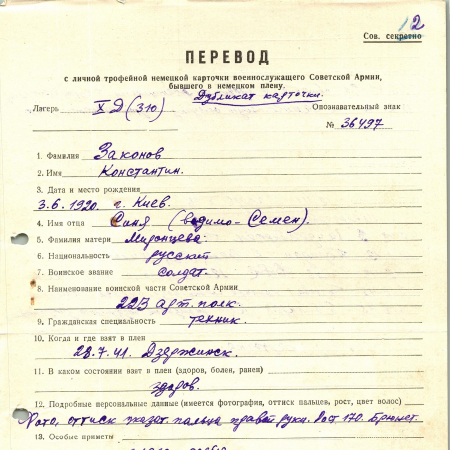 2
Сов. секретно
ПЕРЕВОД
с личной трофейной немецкой карточки военнослужащего Советской Армии,
бывшего в немецком плену.
Дубликат карточки.
Лагерь X Д (310) Опознавательный знак
№ 36497
1. Фамилия Законов
2. Имя Константин.
3. Дата и место рождения
3.6.1920. г. Киев.
4. Имя отца (видимо - Семен).
5. Фамилия матери Миронцева.
6. Национальность русский
7. Воинское звание солдат.
8. Наименование воинской части Советской Армии
223 арт. полк.
9. Гражданская специальность техник.
10. Когда и где взят в плен
28.7.41. Дзержинск.
11. В каком состоянии взят в плен (здоров, болен, ранен)
здоров.
12. Подробные персональные данные (имеется фотография, оттиск пальцев, рост, цвет волос)
Фото, оттиск указат. пальца правой руки. Рост 170. Брюнет.
13. Особые приметы